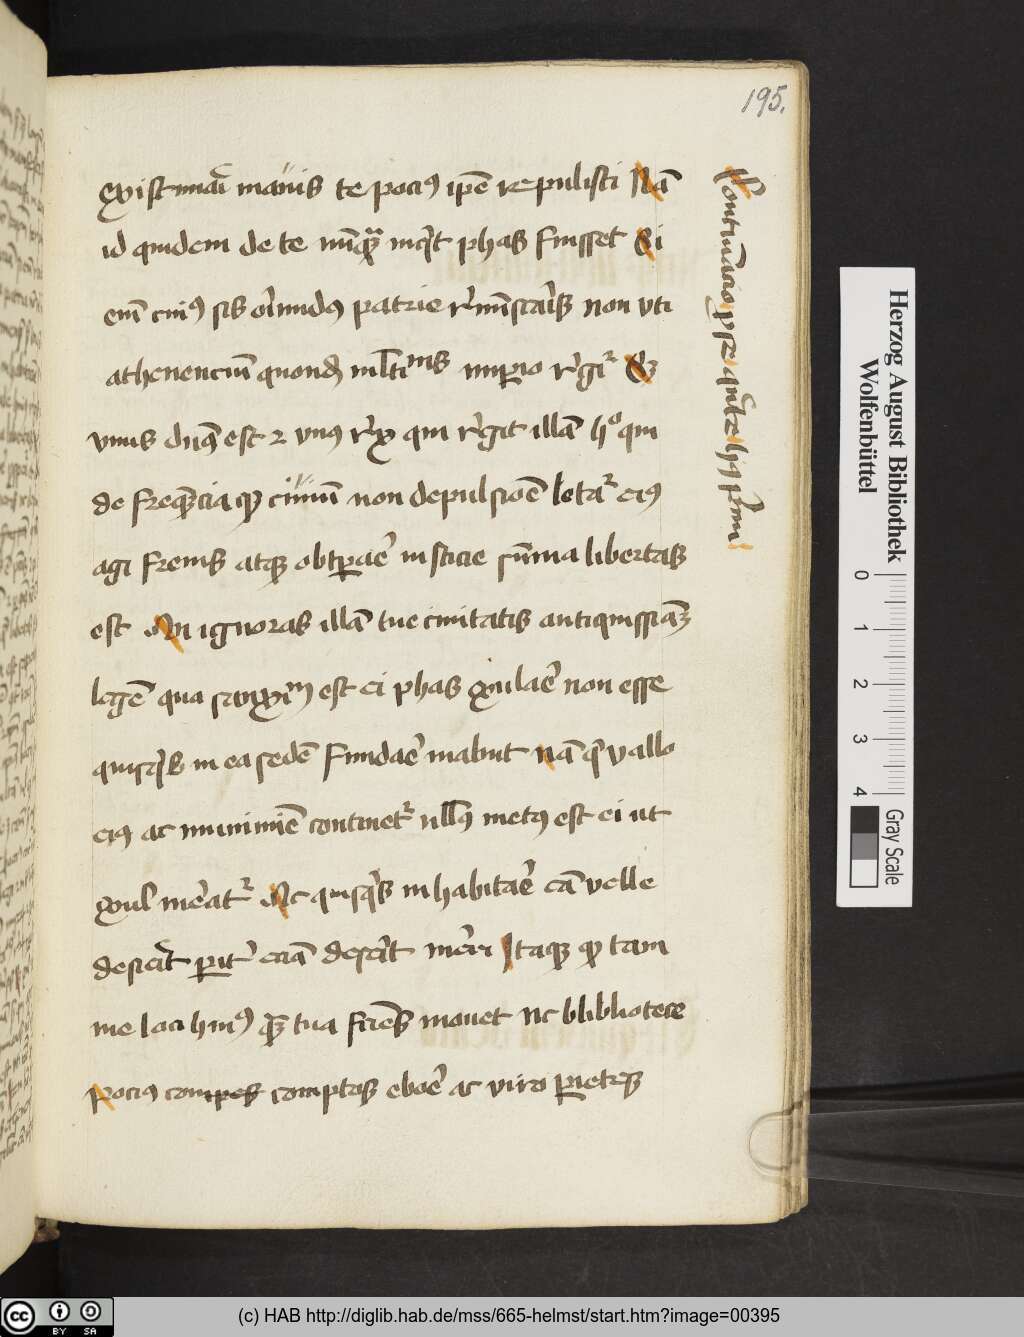 195.
existimari mavis te pocius ipse repulisti Nam
id quidem de te numquam inquit phas fuisset Si
enim cuius sis oriundus patrie reminiscaris non uti
athenencium quondam multitudinis imperio regitur Sed
unus dominus est et unus rex qui regit illam hoc qui
de frequencia quod civium non depulsione letatur eius
agi frenis atque obtemperare iusticie summa libertas
est An ignoras illam tue civitatis antiquissimam
legem qua sanxitum est ei phas exulare non esse
quisquis in ea sedem fundare mabuit nam qui vallo
eius ac munimine continetur nullus metus est ei ut
exul mereatur At quisquis inhabitare eam velle
desierit pariter eciam deserit mereri Itaque quod tam
me loci huius quam tua facies movet nec blibliotece
pocius comptos ebore ac vitro parietes
Herzog August Bibliothek
Wolfenbüttel
0 1 2 3 4
Gray Scale
cc BY SA
(c) HAB http://diglib.hab.de/mss/665-helmst/start.htm?image=00395